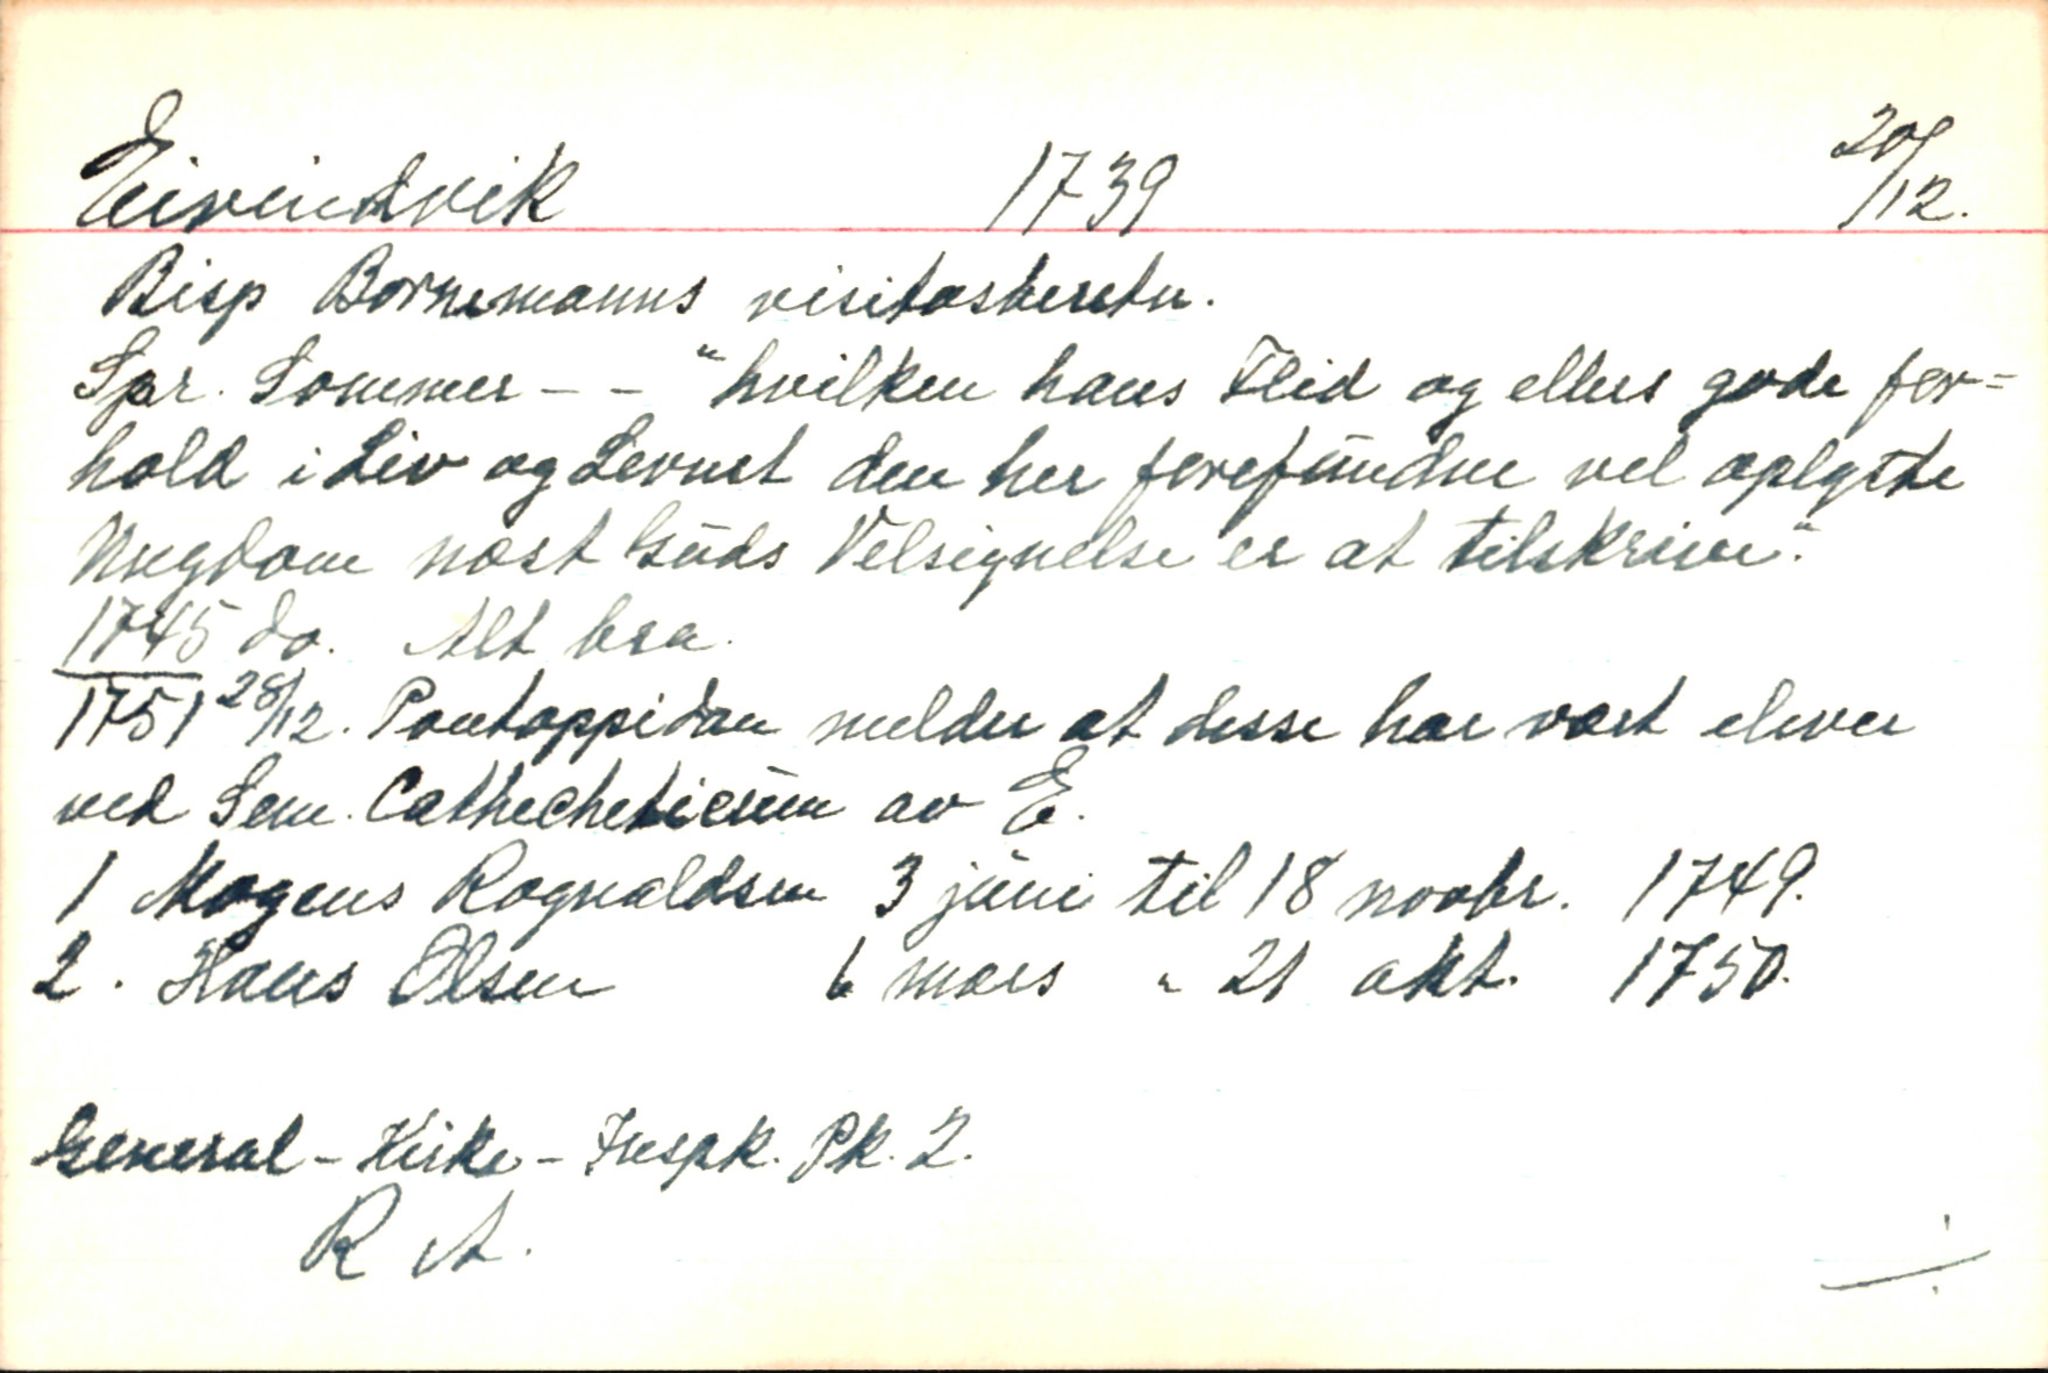 Eivindvik 1739 20/12.
Bisp Bornemanns visitasberetn.
Spr. Sommer - - "hvilken hans Flid og ellers gode for=
hold i Liv og Levnet den her forefundne vel oplyste
Ungdom næst Guds Velsignelse er at tilskrive."
1745 do. Alt bra.
1751 28/12. Pontoppidan melder at disse har vært elever
ved Sem. Cathecheticum av E.
1 Mogens Rognaldsen 3 juni til 18 novbr. 1749.
2. Hans Olsen 6 mars " 21 okt. 1750.
General - Kirke - Inspk. Pk. 2.
R A.